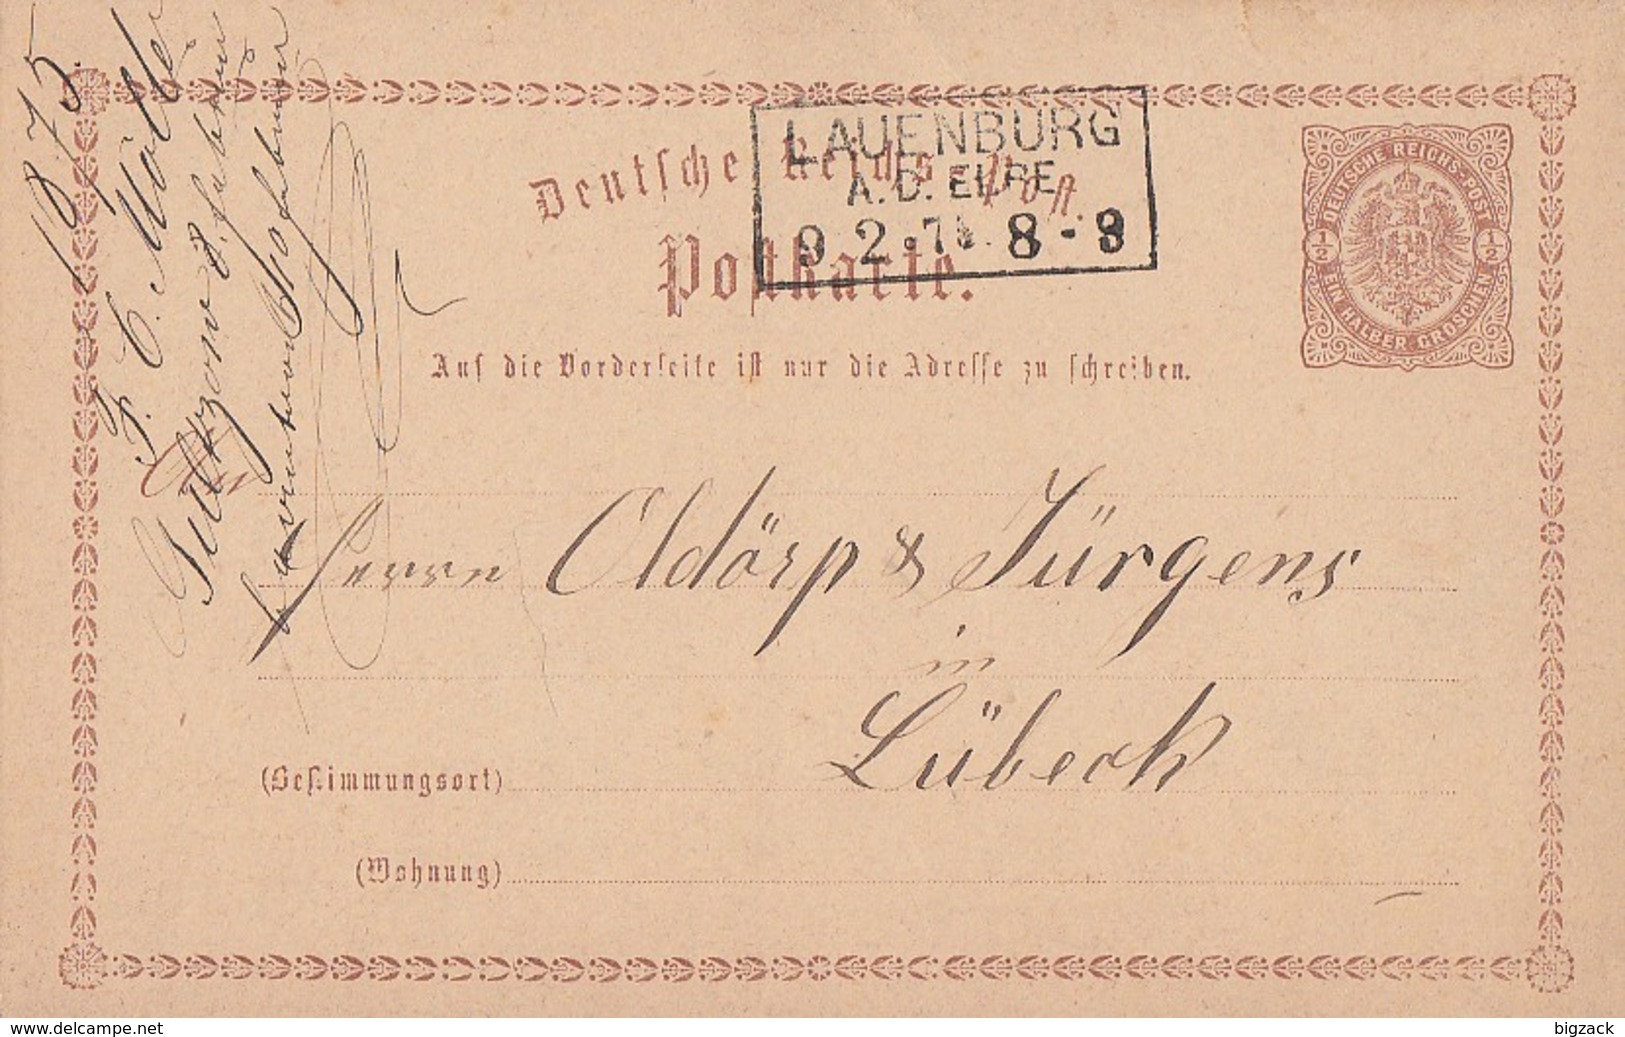 1875.
F. C. Möller
LAUENBURG
A. D. ELBE
9 2 .75. 8-9
Deutsche Reichs-Post.
Postkarte.
DEUTSCHE REICHS-POST
1/2 1/2
EIN HALBER GROSCHEN
Auf die Vorderseite ist nur die Adresse zu schreiben.
An
Herren Oldörp & Jürgens
in
Lübeck
(Bestimmungsort)
(Wohnung)
www.delcampe.net
bigzack